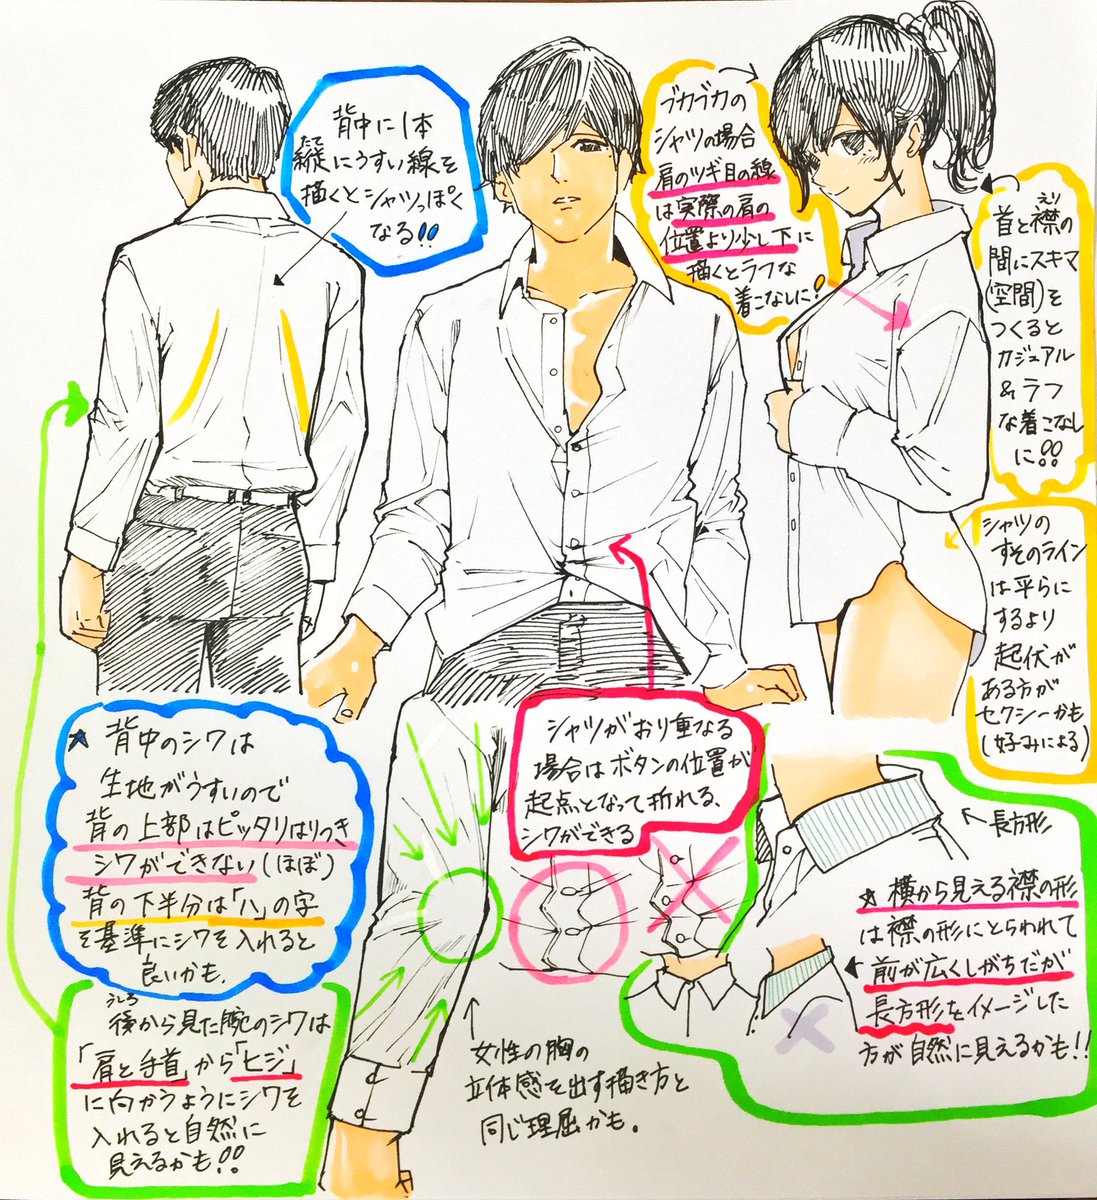 背中に1本
縦にうすい線を
たて
描くとシャツっぽく
なる!!
ブカブカの
シャツの場合
肩のツギ目の線
は実際の肩の
位置より少し下に
描くとラフな
着こなしに!
えり
首と襟の
間にスキマ
(空間)を
つくると
カジュアル
&ラフ
な着こなし
に!!
シャツの
すそのライン
は平らに
するより
起伏が
ある方が
セクシーかも
(好みによる)
★背中のシワは
生地がうすいので
背の上部はピッタリはりつき
シワができない(ほぼ)
背の下半分は「ハ」の字
を基準にシワを入れると
良いかも.
うしろ
後から見た腕のシワは
「肩と手首」から「ヒジ」
に向かうようにシワを
入れると自然に
見えるかも!!
シャツがおり重なる
場合はボタンの位置が
起点となって折れる、
シワができる
女性の胸の
立体感を出す描き方と
同じ理屈かも.
長方形
★横から見える襟の形
は襟の形にとらわれて
前が広くしがちだが
長方形をイメージした
方が自然に見えるかも!!